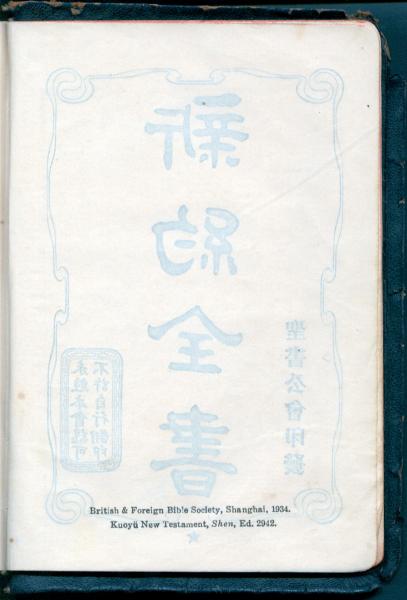 新約全書
聖書公會印發
未經本會許可
不許自行翻印
British & Foreign Bible Society, Shanghai, 1934.
Kuoyü New Testament, Shen, Ed. 2942.